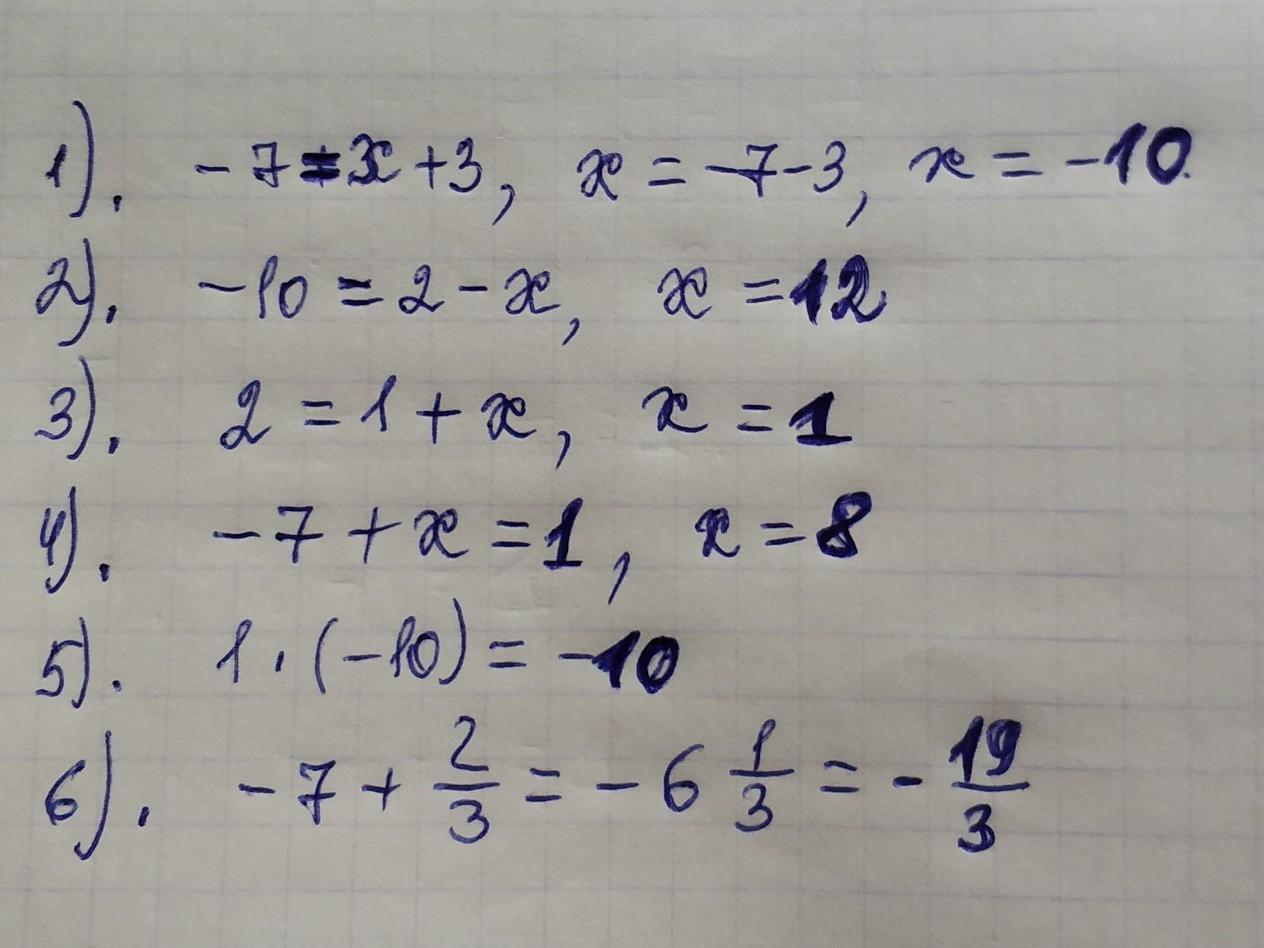 1). -7 = x + 3, x = -7 - 3, x = -10.
2). -10 = 2 - x, x = 12
3). 2 = 1 + x, x = 1
4). -7 + x = 1, x = 8
5). 1 · (-10) = -10
6). -7 + 2/3 = -6 1/3 = -19/3